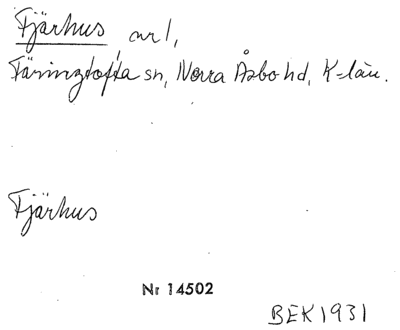 Fjärhus nr 1,
Färingtofta sn, Norra Åsbo hd, K-län.
Fjärhus
Nr 14502
BEK 1931